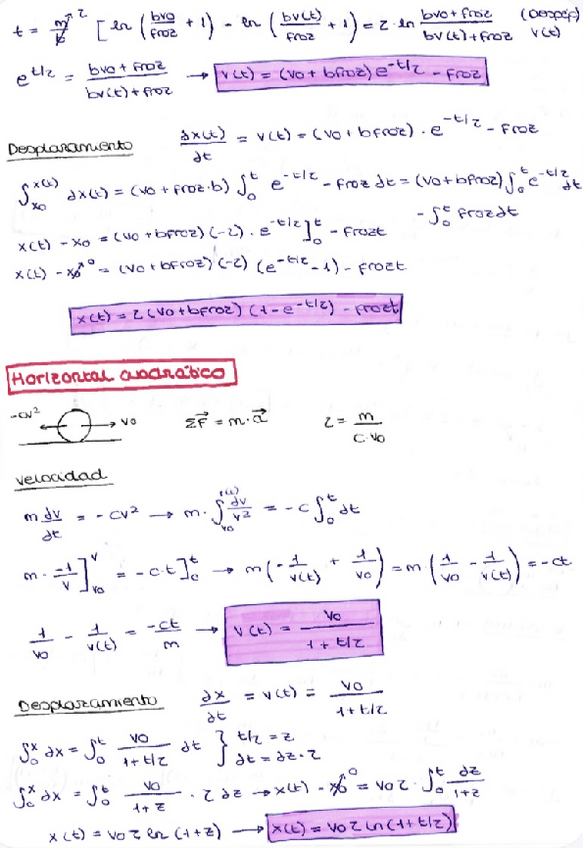 t = m/b ↗τ [ ln (bv0/froz + 1) - ln (bv(t)/froz + 1) = τ · ln (bv0 + froz)/(bv(t) + froz) (Despej) v(t)
e^(t/τ) = (bv0 + froz)/(bv(t) + froz) → v(t) = (v0 + bfroz) e^(-t/τ) - froz
Desplazamiento dx(t)/dt = v(t) = (v0 + bfroz) · e^(-t/τ) - froz
∫_x0^x(t) dx(t) = (v0 + froz·b) ∫_0^t e^(-t/τ) - froz dt = (v0 + bfroz) ∫_0^t e^(-t/τ) dt
- ∫_0^t froz dt
x(t) - x0 = (v0 + bfroz) (-τ) · e^(-t/τ) ]_0^t - frozt
x(t) - x0 ↗0 = (v0 + bfroz) (-τ) (e^(-t/τ) - 1) - frozt
x(t) = τ (v0 + bfroz) (1 - e^(-t/τ)) - frozt
Horizontal cuadrático
-cv² → v0 ΣF⃗ = m · a⃗ τ = m/(c·v0)
Velocidad
m dv/dt = -cv² → m · ∫_v0^v(t) dv/v² = -c ∫_0^t dt
m · -1/v ]_v0^v = -c·t ]_0^t → m (-1/v(t) + 1/v0) = m (1/v0 - 1/v(t)) = -ct
1/v0 - 1/v(t) = -ct/m → v(t) = v0/(1 + t/τ)
Desplazamiento dx/dt = v(t) = v0/(1 + t/τ)
∫_0^x dx = ∫_0^t v0/(1 + t/τ) dt } t/τ = z
dt = dz · τ
∫_0^x dx = ∫_0^t v0/(1 + z) · τ dz → x(t) - x0 ↗0 = v0 τ · ∫_0^t dz/(1+z)
x(t) = v0 τ ln (1+z) → x(t) = v0 τ ln (1 + t/τ)